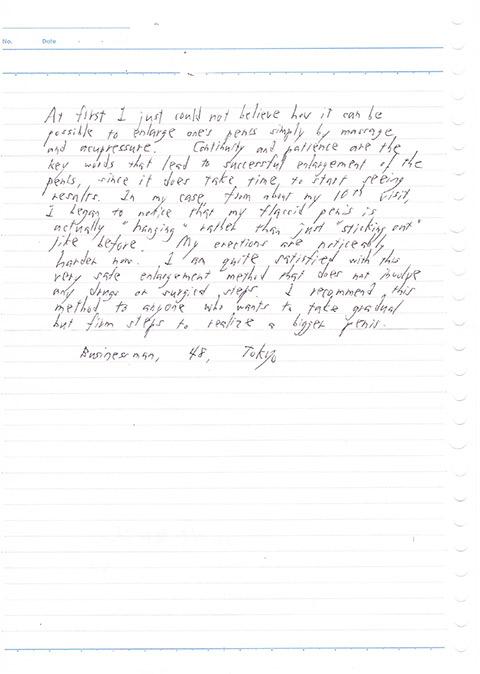 No.    Date    ·    ·
At first I just could not believe how it can be
possible to enlarge one's penis simply by massage
and acupressure. Continuity and patience are the
key words that lead to successful enlargement of the
penis, since it does take time, to start seeing
results. In my case, from about my 10th visit,
I began to notice that my flaccid penis is
actually "hanging" rather than just "sticking out"
like before. My erections are noticeably
harder now. I am quite satisfied with this
very safe enlargement method that does not involve
any drugs or surgical steps. I recommend this
method to anyone who wants to take gradual
but firm steps to realize a bigger penis.
Businessman, 48, Tokyo